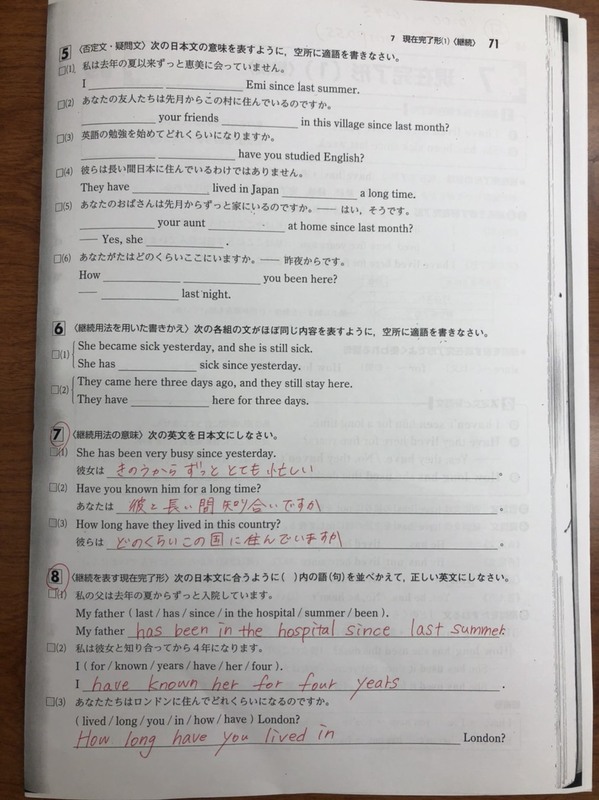 7 現在完了形(1)〈継続〉 71
5 〈否定文・疑問文〉次の日本文の意味を表すように，空所に適語を書きなさい。
□(1) 私は去年の夏以来ずっと恵美に会っていません。
I ____________ ____________ Emi since last summer.
□(2) あなたの友人たちは先月からこの村に住んでいるのですか。
____________ your friends ____________ in this village since last month?
□(3) 英語の勉強を始めてどれくらいになりますか。
____________ ____________ have you studied English?
□(4) 彼らは長い間日本に住んでいるわけではありません。
They have ____________ lived in Japan ____________ a long time.
□(5) あなたのおばさんは先月からずっと家にいるのですか。── はい，そうです。
____________ your aunt ____________ at home since last month?
── Yes, she ____________ .
□(6) あなたがたはどのくらいここにいますか。── 昨夜からです。
How ____________ ____________ you been here?
── ____________ last night.
6 〈継続用法を用いた書きかえ〉次の各組の文がほぼ同じ内容を表すように，空所に適語を書きなさい。
□(1) She became sick yesterday, and she is still sick.
She has ____________ sick since yesterday.
□(2) They came here three days ago, and they still stay here.
They have ____________ here for three days.
7 〈継続用法の意味〉次の英文を日本文にしなさい。
□(1) She has been very busy since yesterday.
彼女は きのうから ずっと とても 忙しい 。
□(2) Have you known him for a long time?
あなたは 彼と長い間 知り合いですか 。
□(3) How long have they lived in this country?
彼らは どのくらいこの国に住んでいますか 。
8 〈継続を表す現在完了形〉次の日本文に合うように( )内の語(句)を並べかえて，正しい英文にしなさい。
□(1) 私の父は去年の夏からずっと入院しています。
My father ( last / has / since / in the hospital / summer / been ).
My father has been in the hospital since last summer.
□(2) 私は彼女と知り合ってから4年になります。
I ( for / known / years / have / her / four ).
I have known her for four years .
□(3) あなたたちはロンドンに住んでどれくらいになるのですか。
( lived / long / you / in / how / have ) London?
How long have you lived in London?